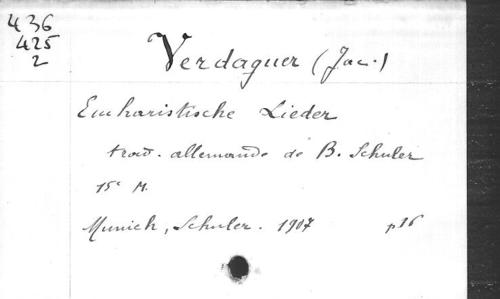 436
425
2
Verdaguer (Jac.)
Eucharistische Lieder
trad. allemande de B. Schuler
15e M.
Munich, Schuler. 1907 p16